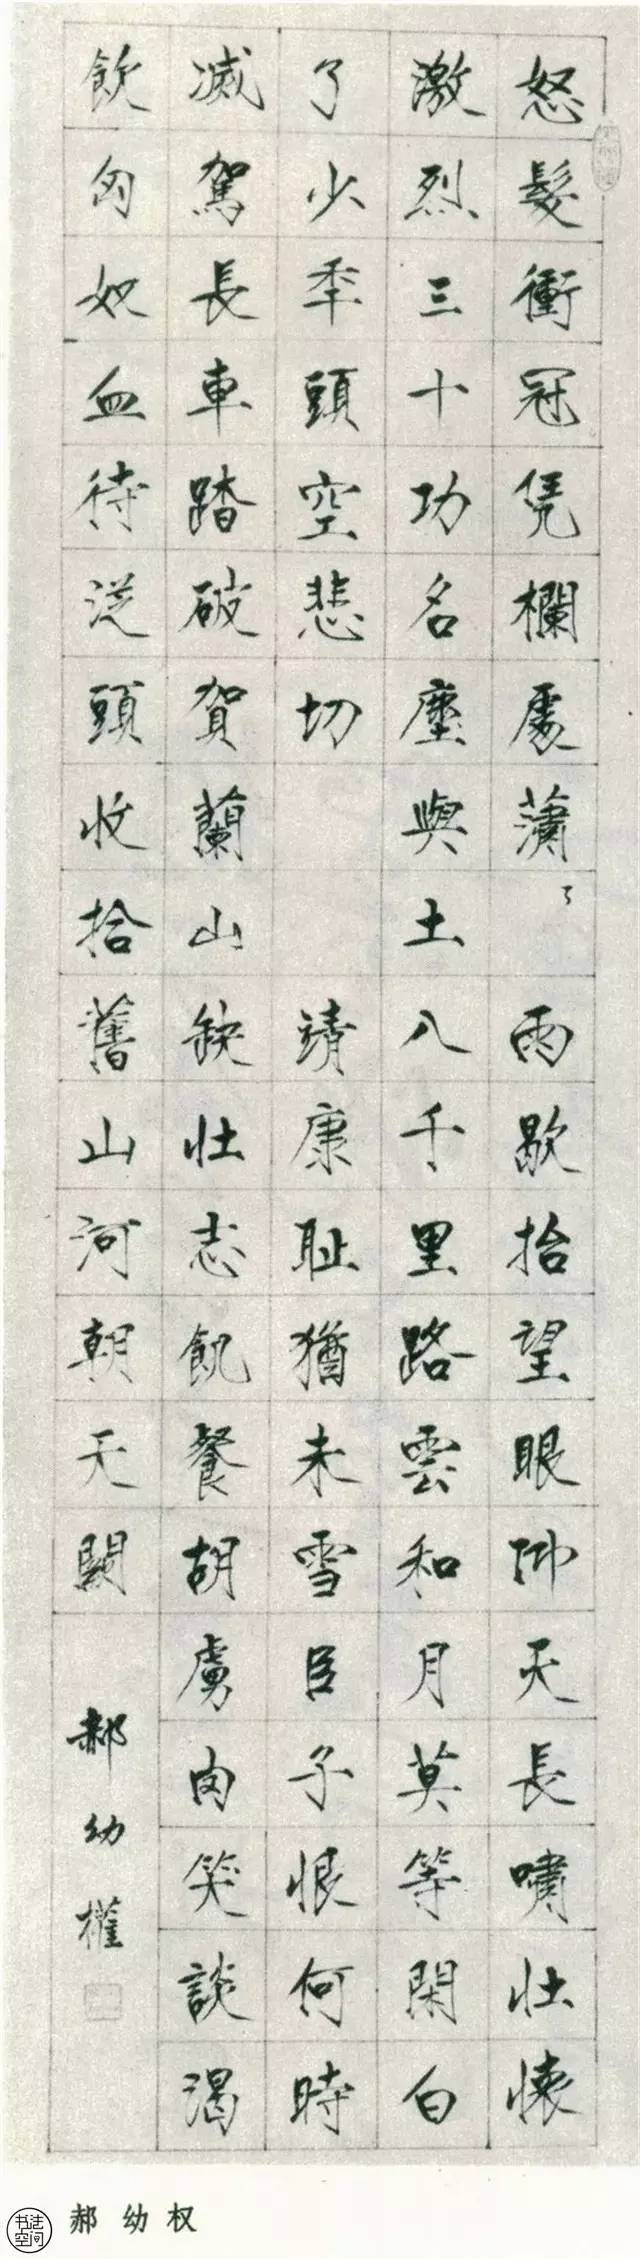 怒髮衝冠凭欄處瀟々雨歇抬望眼仰天長嘯壮懷
激烈三十功名塵與土八千里路雲和月莫等閑白
了少秊頭空悲切 靖康耻猶未雪臣子恨何時
滅駕長車踏破賀蘭山缺壮志飢餐胡虜肉笑談渴
飲匈奴血待從頭收拾舊山河朝天闕
郝幼權
书法空间
郝幼权